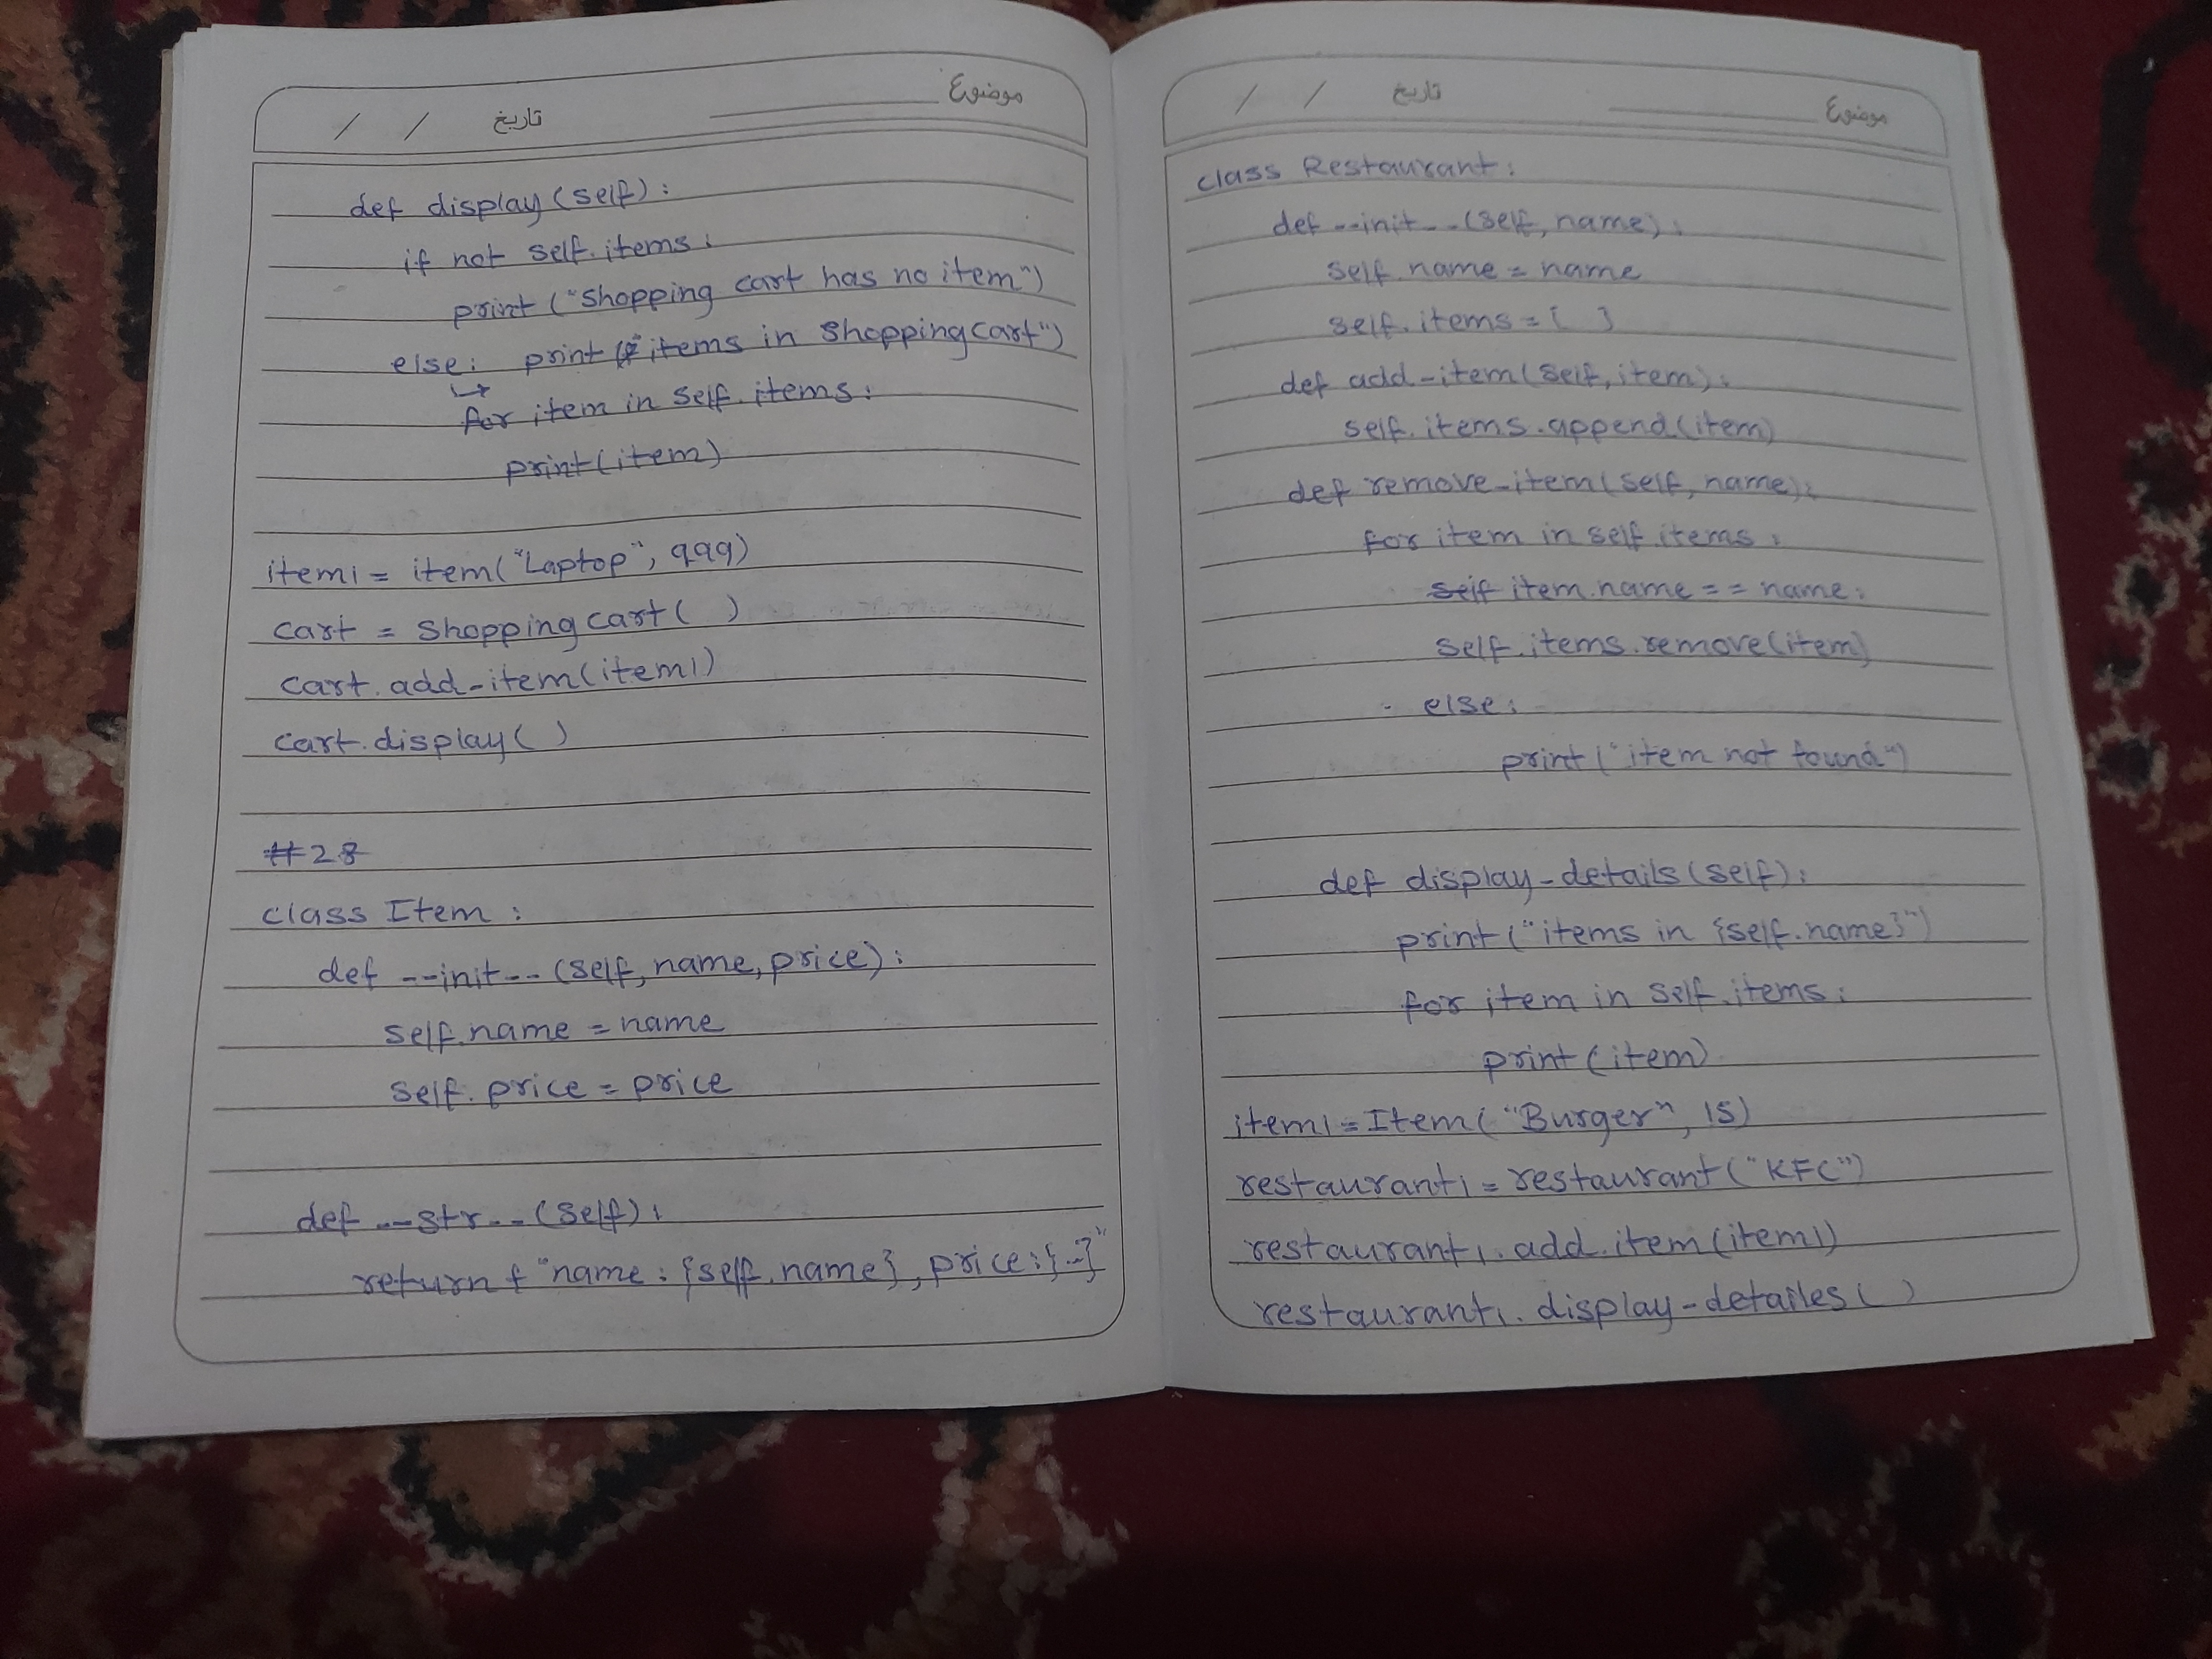 / / تاریخ موضوع
def display(self):
if not self.items:
print("shopping cart has no item")
else: print("items in shoppingcart")
↳ for item in self.items:
print(item)
item1 = item("Laptop", 999)
cart = shoppingcart( )
cart.add_item(item1)
cart.display( )
#28
class Item:
def __init__(self, name, price):
self.name = name
self.price = price
def __str__(self):
return f"name: {self.name}, price: {..}"
/ / تاریخ موضوع
class Restaurant:
def __init__(self, name):
self.name = name
self.items = [ ]
def add_item(self, item):
self.items.append(item)
def remove_item(self, name):
for item in self.items:
self item.name == name:
self.items.remove(item)
else:
print("item not found")
def display_details(self):
print("items in {self.name}")
for item in self.items:
print(item)
item1 = Item("Burger", 15)
restaurant1 = restaurant("KFC")
restaurant1.add.item(item1)
restaurant1.display_detailes( )